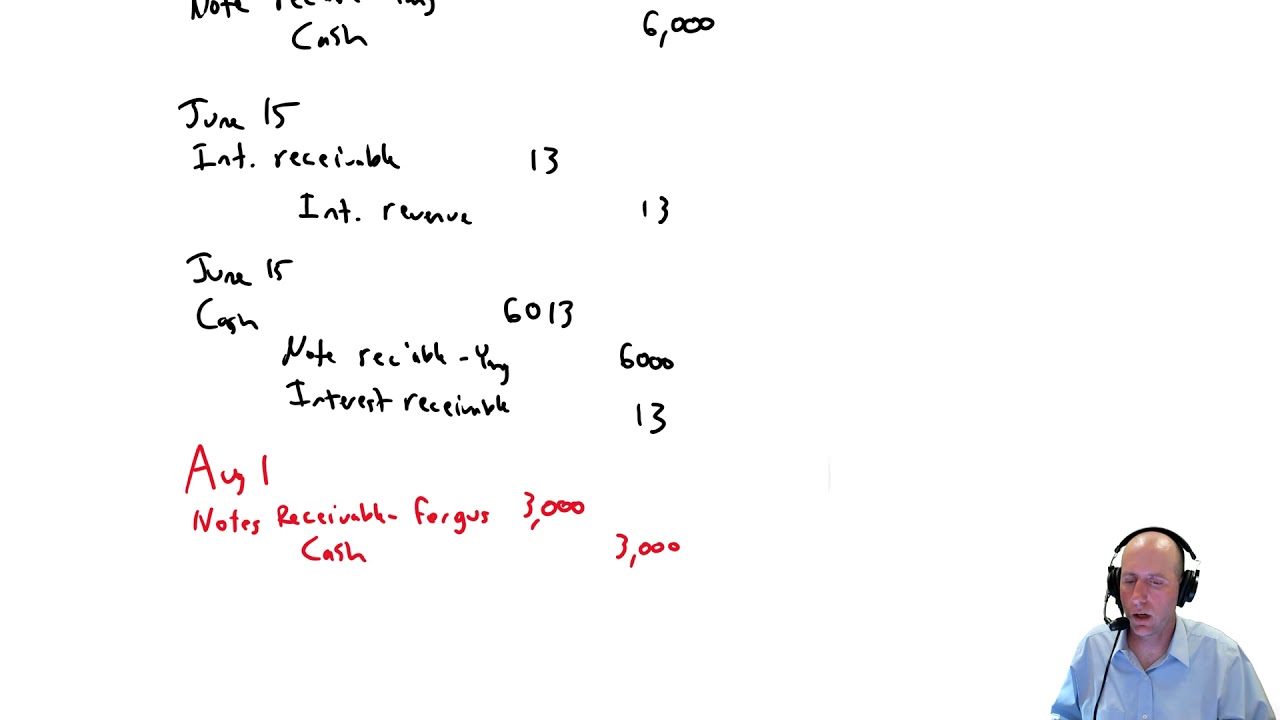 Cash 6,000
June 15
Int. receivable 13
Int. revenue 13
June 15
Cash 6013
Note recible - Yang 6000
Interest receivable 13
Aug 1
Notes Receivable - Fergus 3,000
Cash 3,000